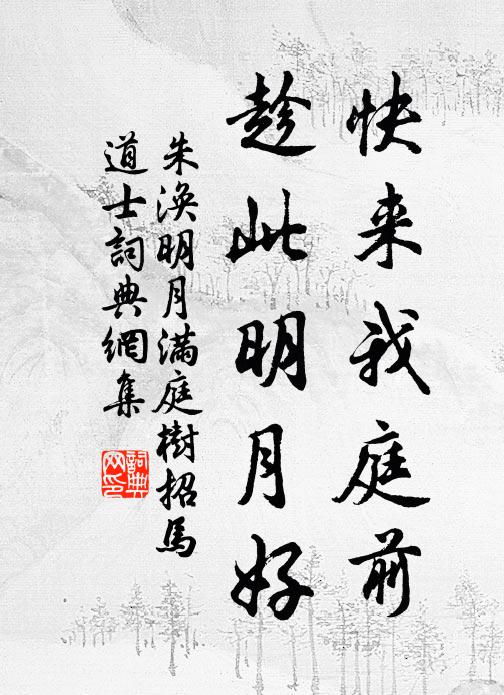 快来我庭前
趁此明月好
朱渙明月满庭樹招馬
道士詞典網集
詞典
网印